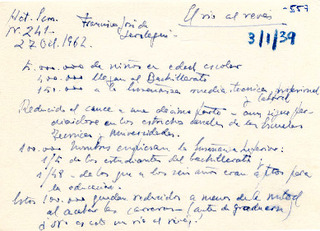 Act. Pem.
Nº 241
27 Oct. 1962.
Francisco José de
El río al revés
-557
3/1/39
de niños en edad escolar
400.000 llegan al Bachillerato
150.000 a la Enseñanza media, técnica, profesional
y laboral
Reducido el cauce a una décima parte - aun sigue
en los estrechos canales de las Escuelas
Técnicas y Universidades.
100.000 hombres empiezan la Enseñanza Superior:
1/5 de los estudiantes del bachillerato
1/48 - de los que a los seis años eran aptos para
la educación.
Estos 100.000 quedan reducidos a menos de la mitad
al acabar las carreras
¿No es esto un río al revés?